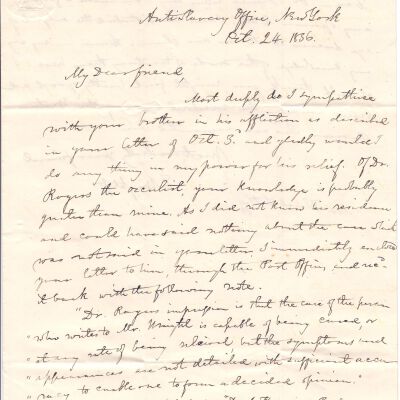 Antislavery Office, New York
Oct. 24. 1836.
My Dear friend,
Most deeply do I sympathise
with your brother in his affliction as described
in your letter of Oct. 3. and gladly would I
do any thing in my power for his relief. Of Dr.
Rogers the occulist, your knowledge is probably
greater than mine. As I did not know his residence
and could have said nothing about the case which
was not said in your letter I immediately enclosed
your letter to him, through the Post Office, and rec'd
it back with the following note.
"Dr. Rogers impression is that the case of the person
"who writes to Mr. Wright is capable of being cured, or
"at any rate of being relieved but the symptoms and
"appearances are not detailed with sufficient accu-
"racy to enable one to form a decided opinion."